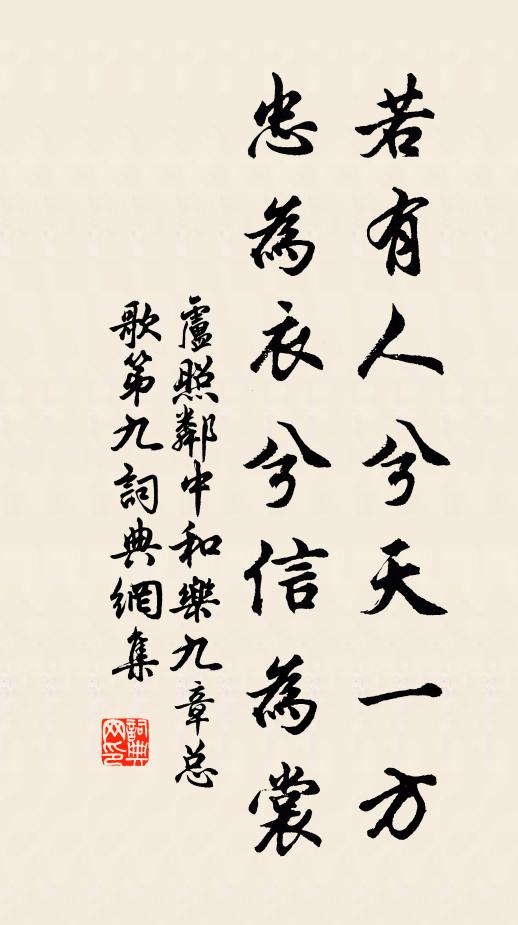 若有人兮天一方
忠為衣兮信為裳
盧照鄰中和樂九章总
歌第九詞典網集
詞典網印